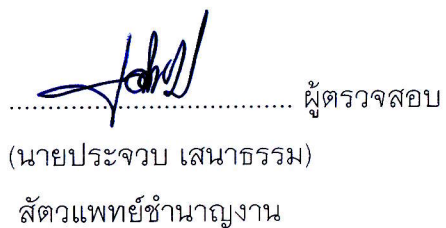 .................................. ผู้ตรวจสอบ
(นายประจวบ เสนาธรรม)
สัตวแพทย์ชำนาญงาน